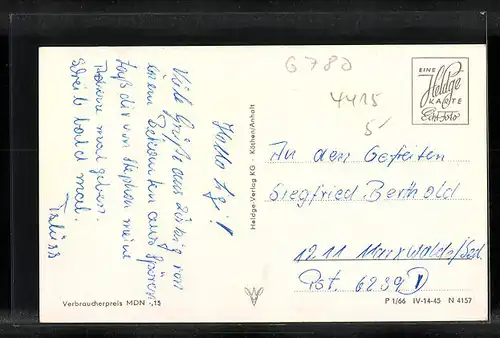 G 780
4415
5/
EINE
Heldge
KARTE
Echt Foto
Hallo
Viele Grüße aus von
einem
laß dir von Stephan meine
mal geben.
Schreib bald mal.
Heldge-Verlag KG · Köthen/Anhalt
An den Gefreiten
Siegfried Berthold
1211 Marxwalde/Seel.
Pst. 6239 V
Verbraucherpreis MDN -,15
P 1/66 IV-14-45 N 4157